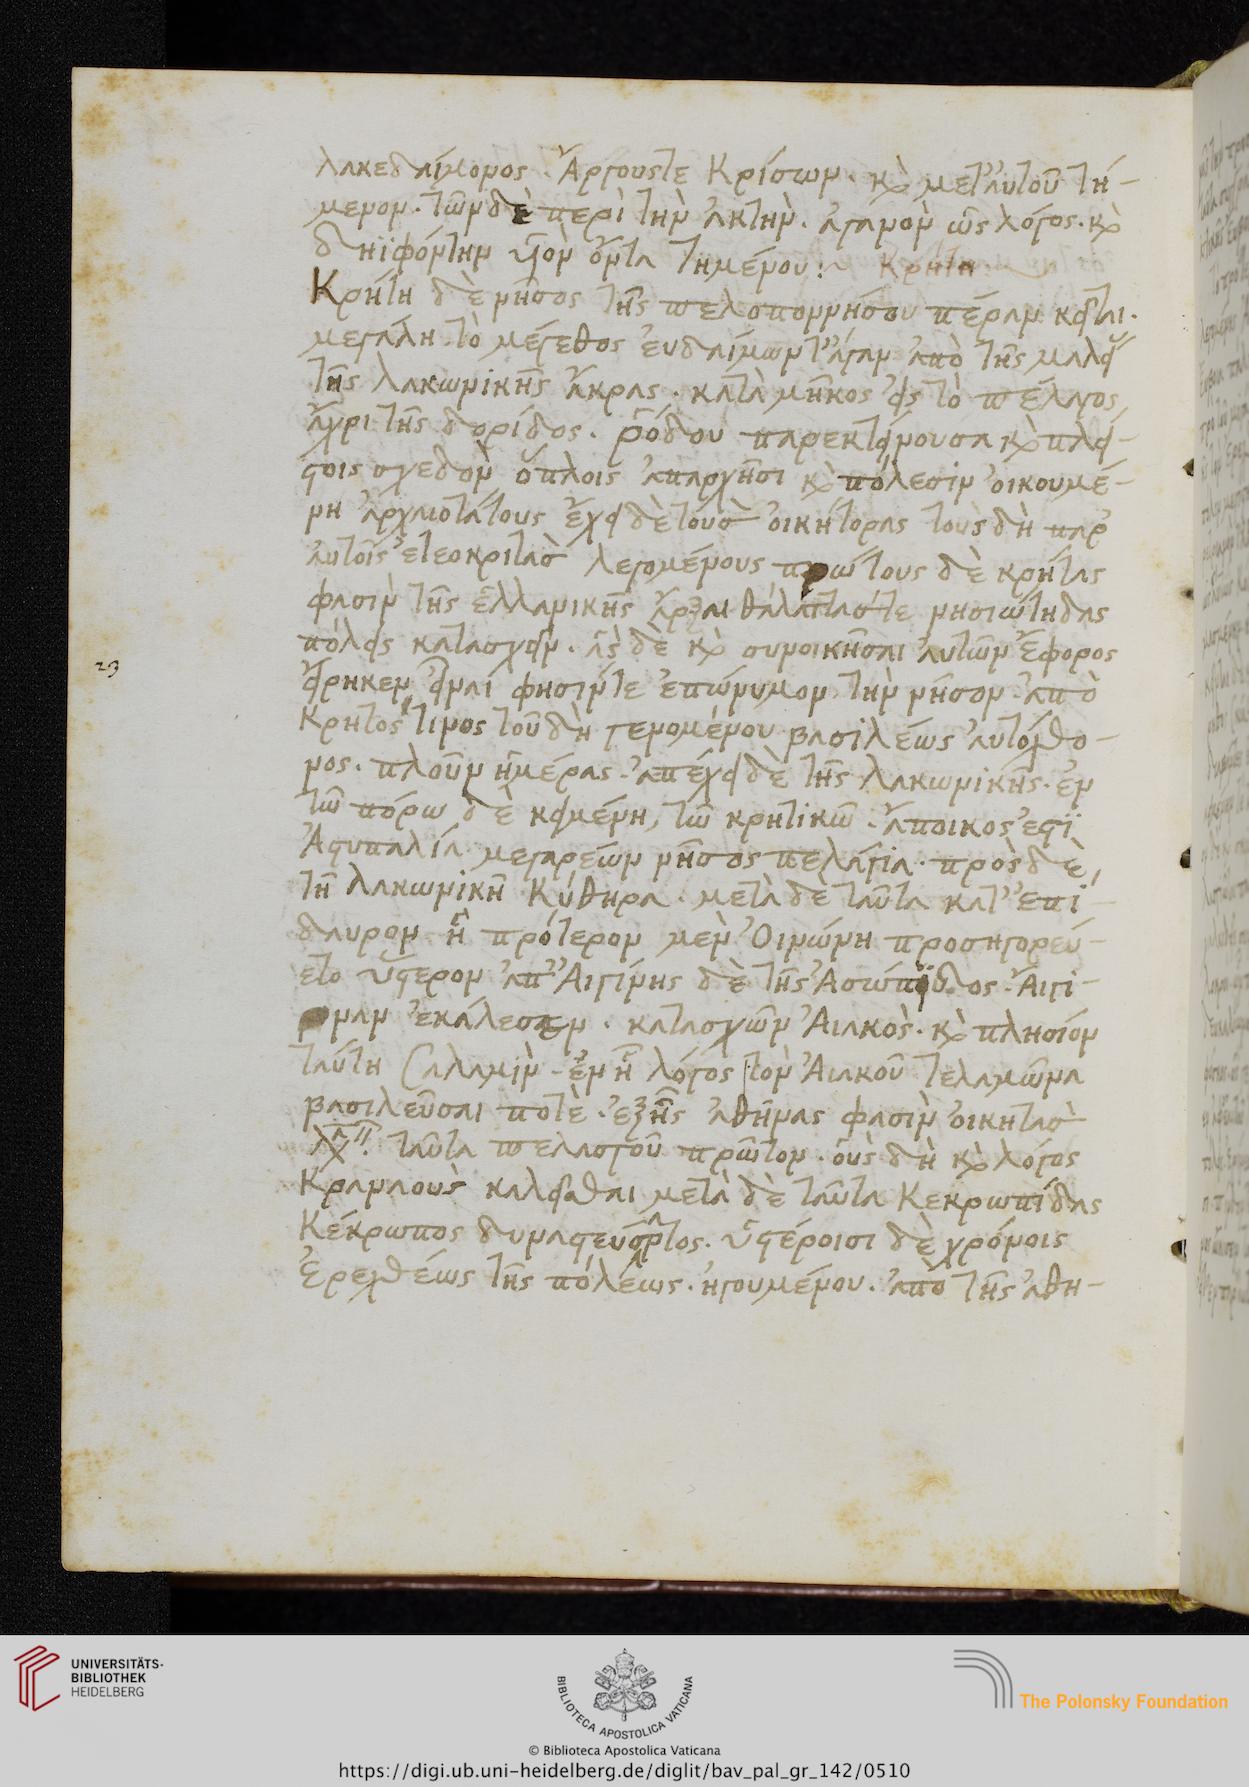 λακεδαίμονος. Ἄργους τε Κρίσσων. καὶ μετ' αὐτοῦ τή-
μενον. τῶν δὲ περὶ τὴν ἀκτὴν. ἀγαμὸν ὡς λόγος. καὶ
δηϊφόντην υἱὸν ὄντα τημένου:~ Κρήτη
Κρήτη δὲ νῆσος τῆς πελοποννήσου πέραν κεῖται.
μεγάλη τὸ μέγεθος εὐδαίμων τ' ἄγαν ἀπὸ τῆς μαλεί
τῆς λακωνικῆς ἄκρας. κατὰ μῆκος εἰς τὸ πέλαγος
ἄχρι τῆς δορίδος. ῥόδου παρεκτείνουσα καὶ πλεί-
στοις σχεδὸν ὅπλοις ἀπαρχῆσι καὶ πόλεσιν οἰκουμέ-
νη ἀρχαιοτάτους ἔχει δὲ τοὺσ οἰκήτορας τοὺς δὴ παρ'
αὐτοῖς ἐτεοκριτὰσ λεγομένους πρώτους δὲ κρήτας
φασὶν τῆς ἑλλανικῆς ἄρξαι θαλάττασ τε νησιώτηδας
πόλεις κατασχεῖν. ἃς δὲ καὶ συνοικῆσαι αὐτῶν Ἔφορος
εἴρηκεν εἶναί φησιν τε ἐπώνυμον τὴν νῆσον ἀπὸ
Κρητός τινος τοῦ δὴ γενομένου βασιλέως αὐτόχθο-
νος. πλοῦν ἡμέρας ἀπέχει δὲ τῆς λακωνικῆς. ἐν
τῶ πόρω δὲ κειμένη, τῶ κρητικῶ. ἄποικος ἐστὶ
Ἀστυπαλία μεγαρέων νῆσος πελάγια. πρὸς δὲ,
τῆ λακωνικῆ Κύθηρα. μετὰ δὲ ταῦτα κατ' ἐπί-
δαυρον ἣ πρότερον μὲν Οἰνώνη προσηγορεύ-
ετο ὕστερον ἀπ' Αἰγίνης δὲ τῆς Ἀσώπϊδος. Αἴγι-
ναν ἐκάλεσεν. κατασχῶν Αἰακὸς. καὶ πλησίον
ταύτη Σαλαμὶν. ἐν ἧ λόγος τὸν Αἰακοῦ τελαμῶνα
βασιλεῦσαι ποτὲ. ἑξῆς ἀθῆνας φασὶν οἰκητὰσ
ταῦτα πελασγοῦ πρῶτον. οὓς δὴ καὶ λόγος
Κραναοὺς καλεῖσθαι μετὰ δὲ ταῦτα Κεκρωπίδας
Κέκρωπος δυναστεύσαντος. ὑστέροισι δὲ χρόνοις
Ἐρεχθέως τῆς πόλεως. ἡγουμένου. ἀπὸ τῆς ἀθη-
23
UNIVERSITÄTS-
BIBLIOTHEK
HEIDELBERG
BIBLIOTECA APOSTOLICA VATICANA
The Polonsky Foundation
© Biblioteca Apostolica Vaticana
https://digi.ub.uni-heidelberg.de/diglit/bav_pal_gr_142/0510